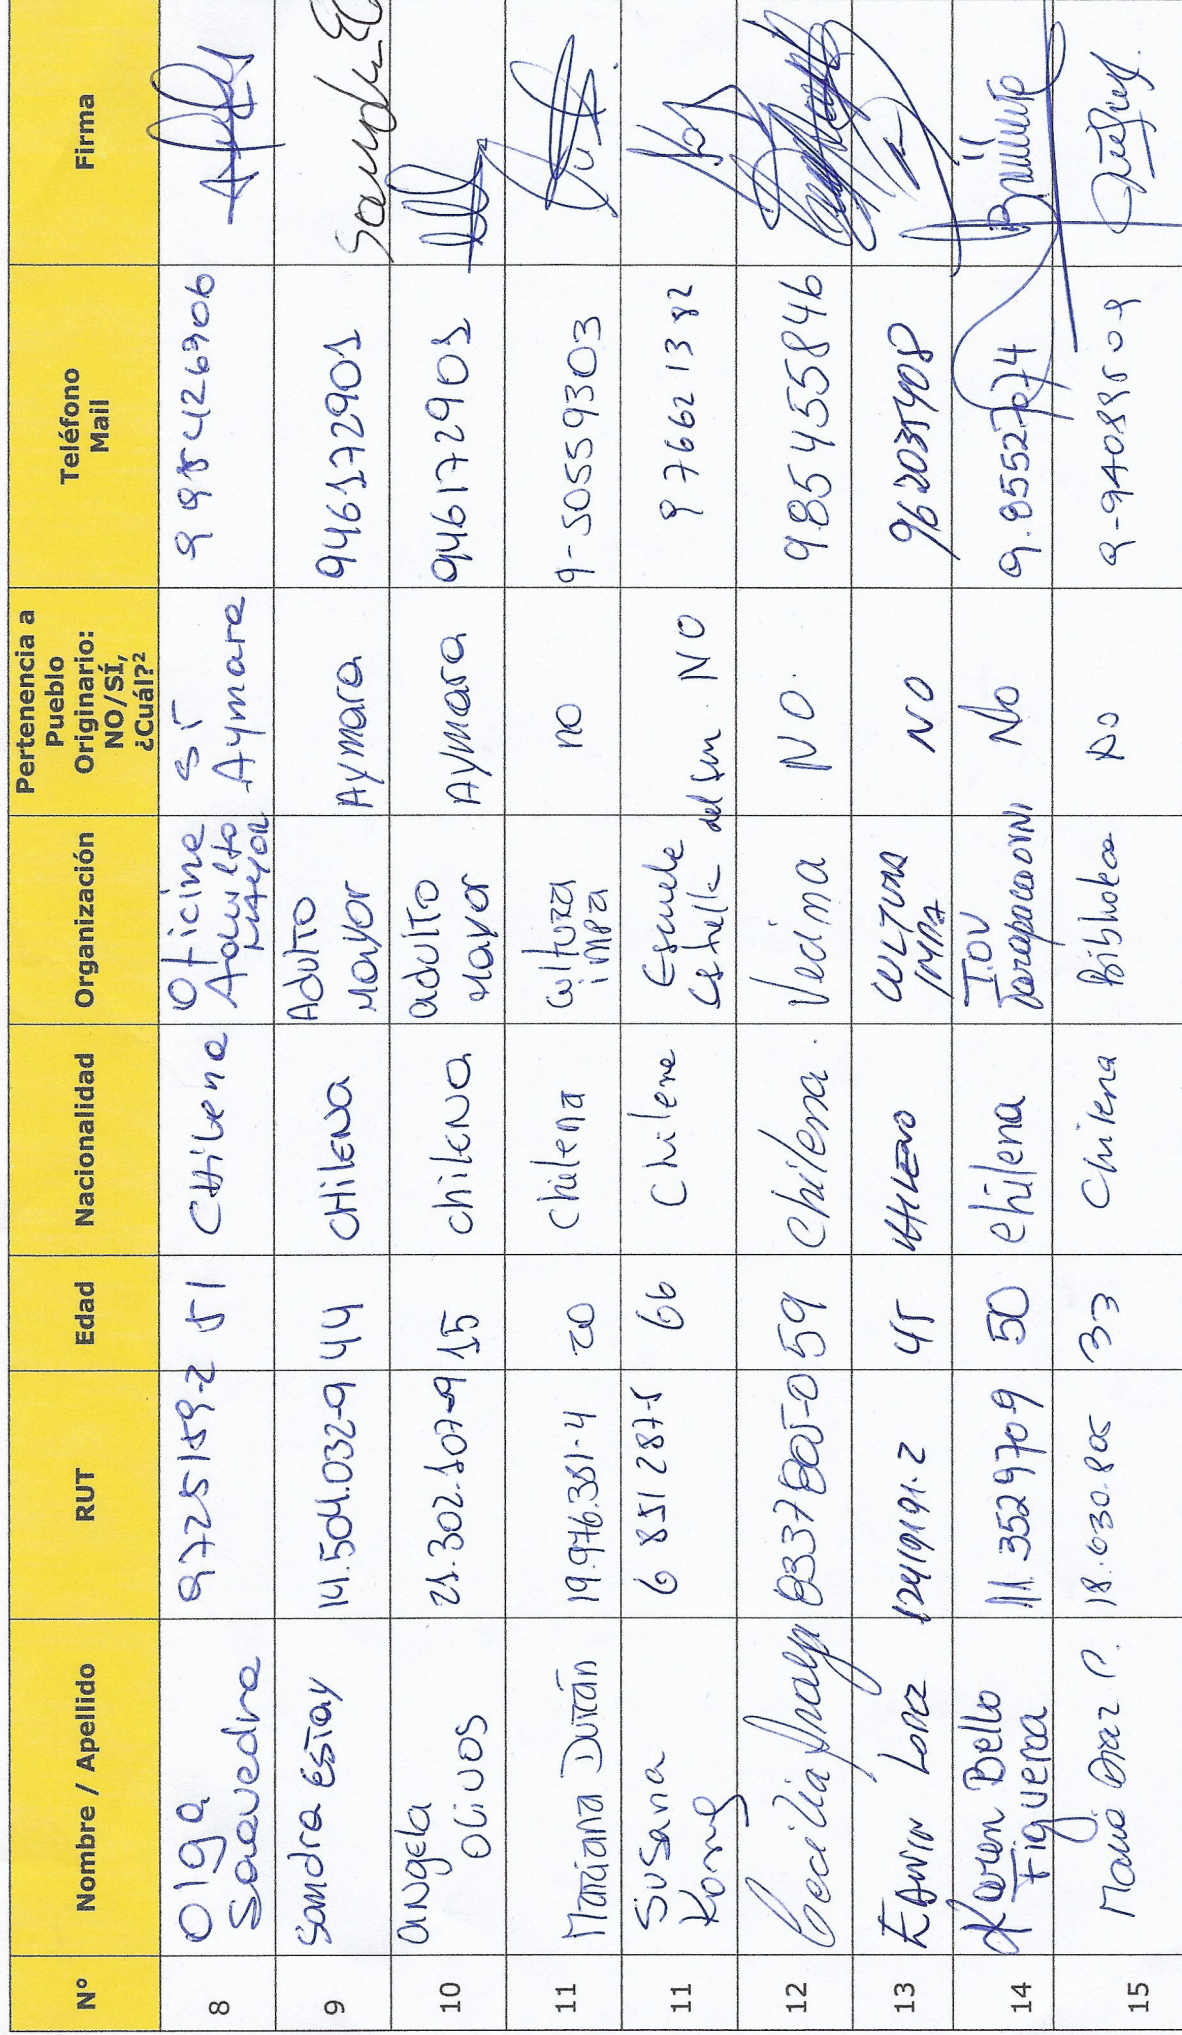 Nº Nombre / Apellido RUT Edad Nacionalidad Organización Pertenencia a Pueblo Originario: NO/SÍ, ¿Cuál?² Teléfono Mail Firma
8 Olga Saavedra 9725159-2 51 CHilena Oficina Adulto MAYOR SI Aymara
9 Sandra Estay 14.504.032-9 44 CHILENA Adulto Mayor Aymara 946172901 Sandra
10 Angela Olivos 21.302.107-9 15 chilena adulto Mayor Aymara 946172901
11 Mariana Durán 19.976.381-4 20 Chilena cultura impa no 9-50559303
11 Susana 6 851287-5 66 Chilena Escuela del sur NO 976621382
12 Cecilia 59 Chilena. Vecina NO. 985455846
13 EDWIN LOPEZ 12419191-2 45 CHILENO CULTURA IMPA NO 962035408
14 Karen Bello Figueroa 11.3529709 50 chilena No 9.85527074
15 Maria Diaz P. 18.030.805 33 Chilena Biblioteca No